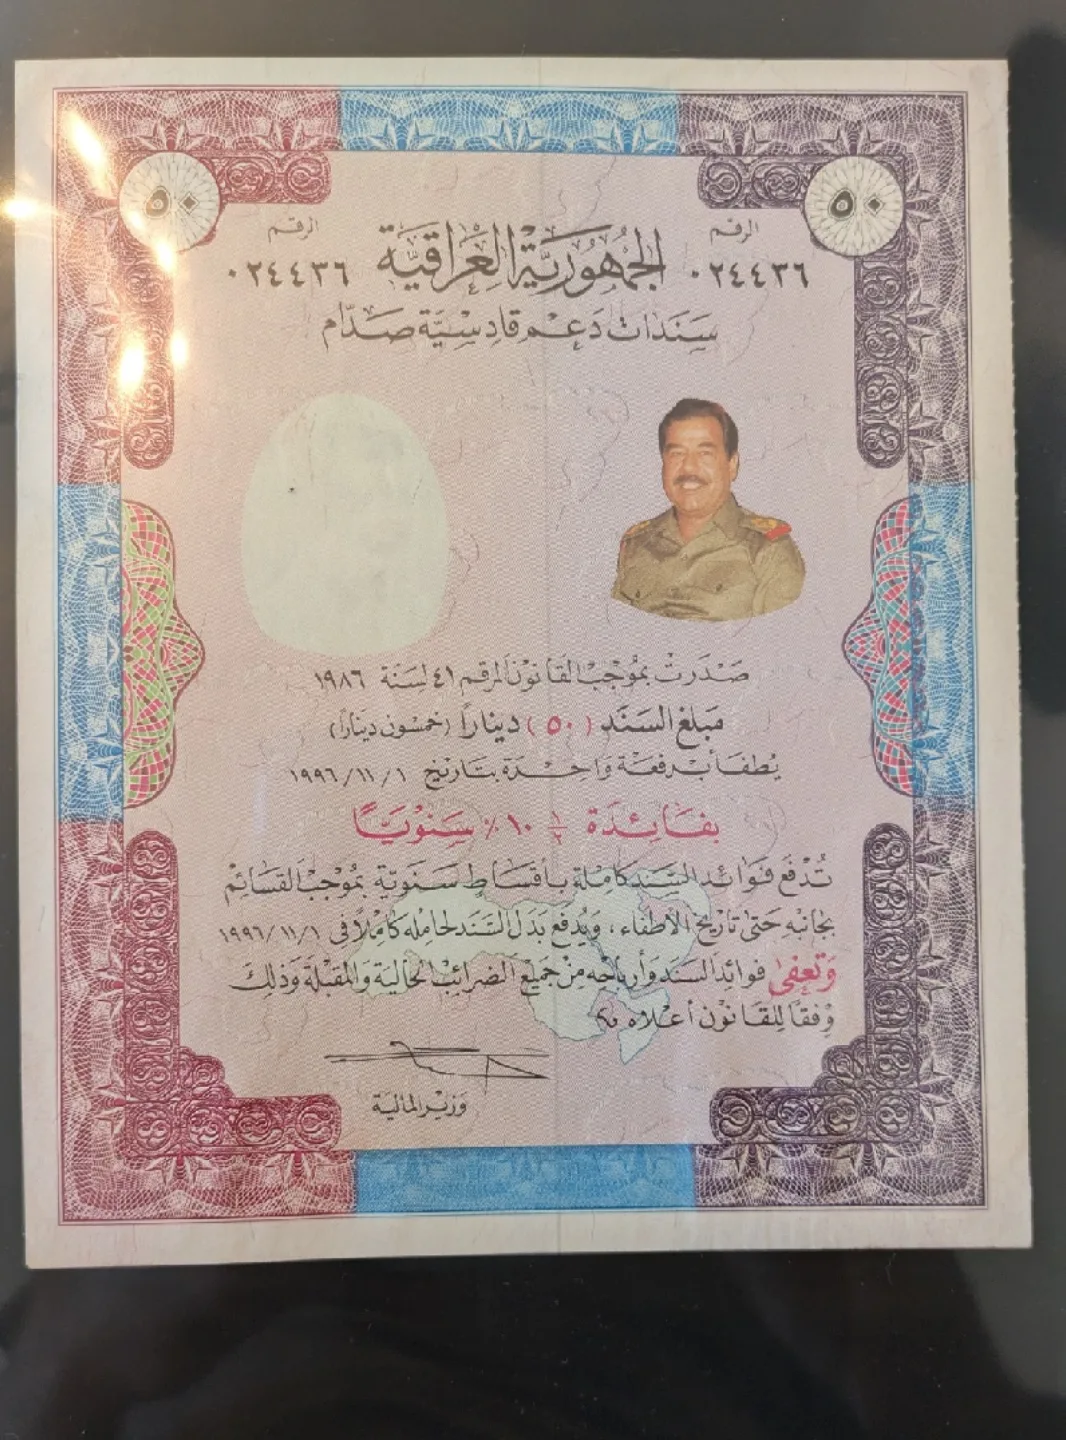 ٥٠ ٥٠
الرقم الرقم
٠٢٤٤٣٦ الجمهورية العراقية ٠٢٤٤٣٦
سندات دعم قادسية صدام
صدرت بموجب القانون المرقم ٤١ لسنة ١٩٨٦
مبلغ السند (٥٠) ديناراً (خمسون ديناراً)
يطفأ بدفعة واحدة بتاريخ ١/١١/١٩٩٦
بفائدة ١/٢ ١٠ ٪ سنوياً
تدفع فوائد السند كاملة بأقساط سنوية بموجب القسائم
بجانبه حتى تاريخ الاطفاء، ويدفع بدل السند لحامله كاملاً في ١/١١/١٩٩٦
وتعفى فوائد السند وأرباحه من جميع الضرائب الحالية والمقبلة وذلك
وفقاً للقانون أعلاه
وزير المالية